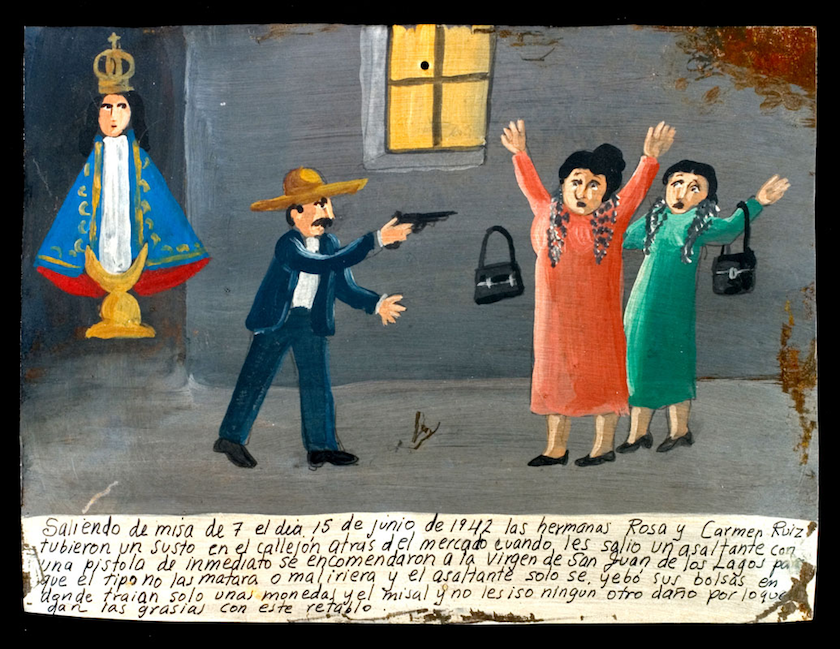 Saliendo de misa de 7 el dia 15 de junio de 1942 las hermanas Rosa y Carmen Ruiz
tubieron un susto en el callejón atras del mercado cuando les salio un asaltante con
una pistola de inmediato se encomendaron a la Virgen de San Juan de los Lagos pa
que el tipo no las matara o maliriera y el asaltante solo se yebó sus bolsas en
donde traian solo unas monedas y el misal y no les iso ningun otro daño por lo que
dan las grasias con este retablo.